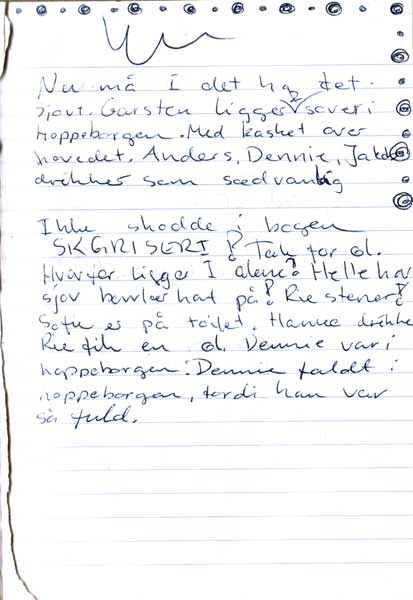 Nu må I det ha det
sjovt. Carsten ligger & sover i
hoppeborgen. Med kasket over
hovedet. Anders, Dennie, Jakob
drikker som sædvanlig
Ikke skodde i bogen
SKGRISERI! Tak for øl.
Hvorfor ligger I alene? Helle har
sjov bowlerhat på! Rie stener!
Sofie er på toilet. Hanne drikke
Rie fik en øl. Dennie var i
hoppeborgen. Dennie faldt i
hoppeborgen, fordi han var
så fuld.